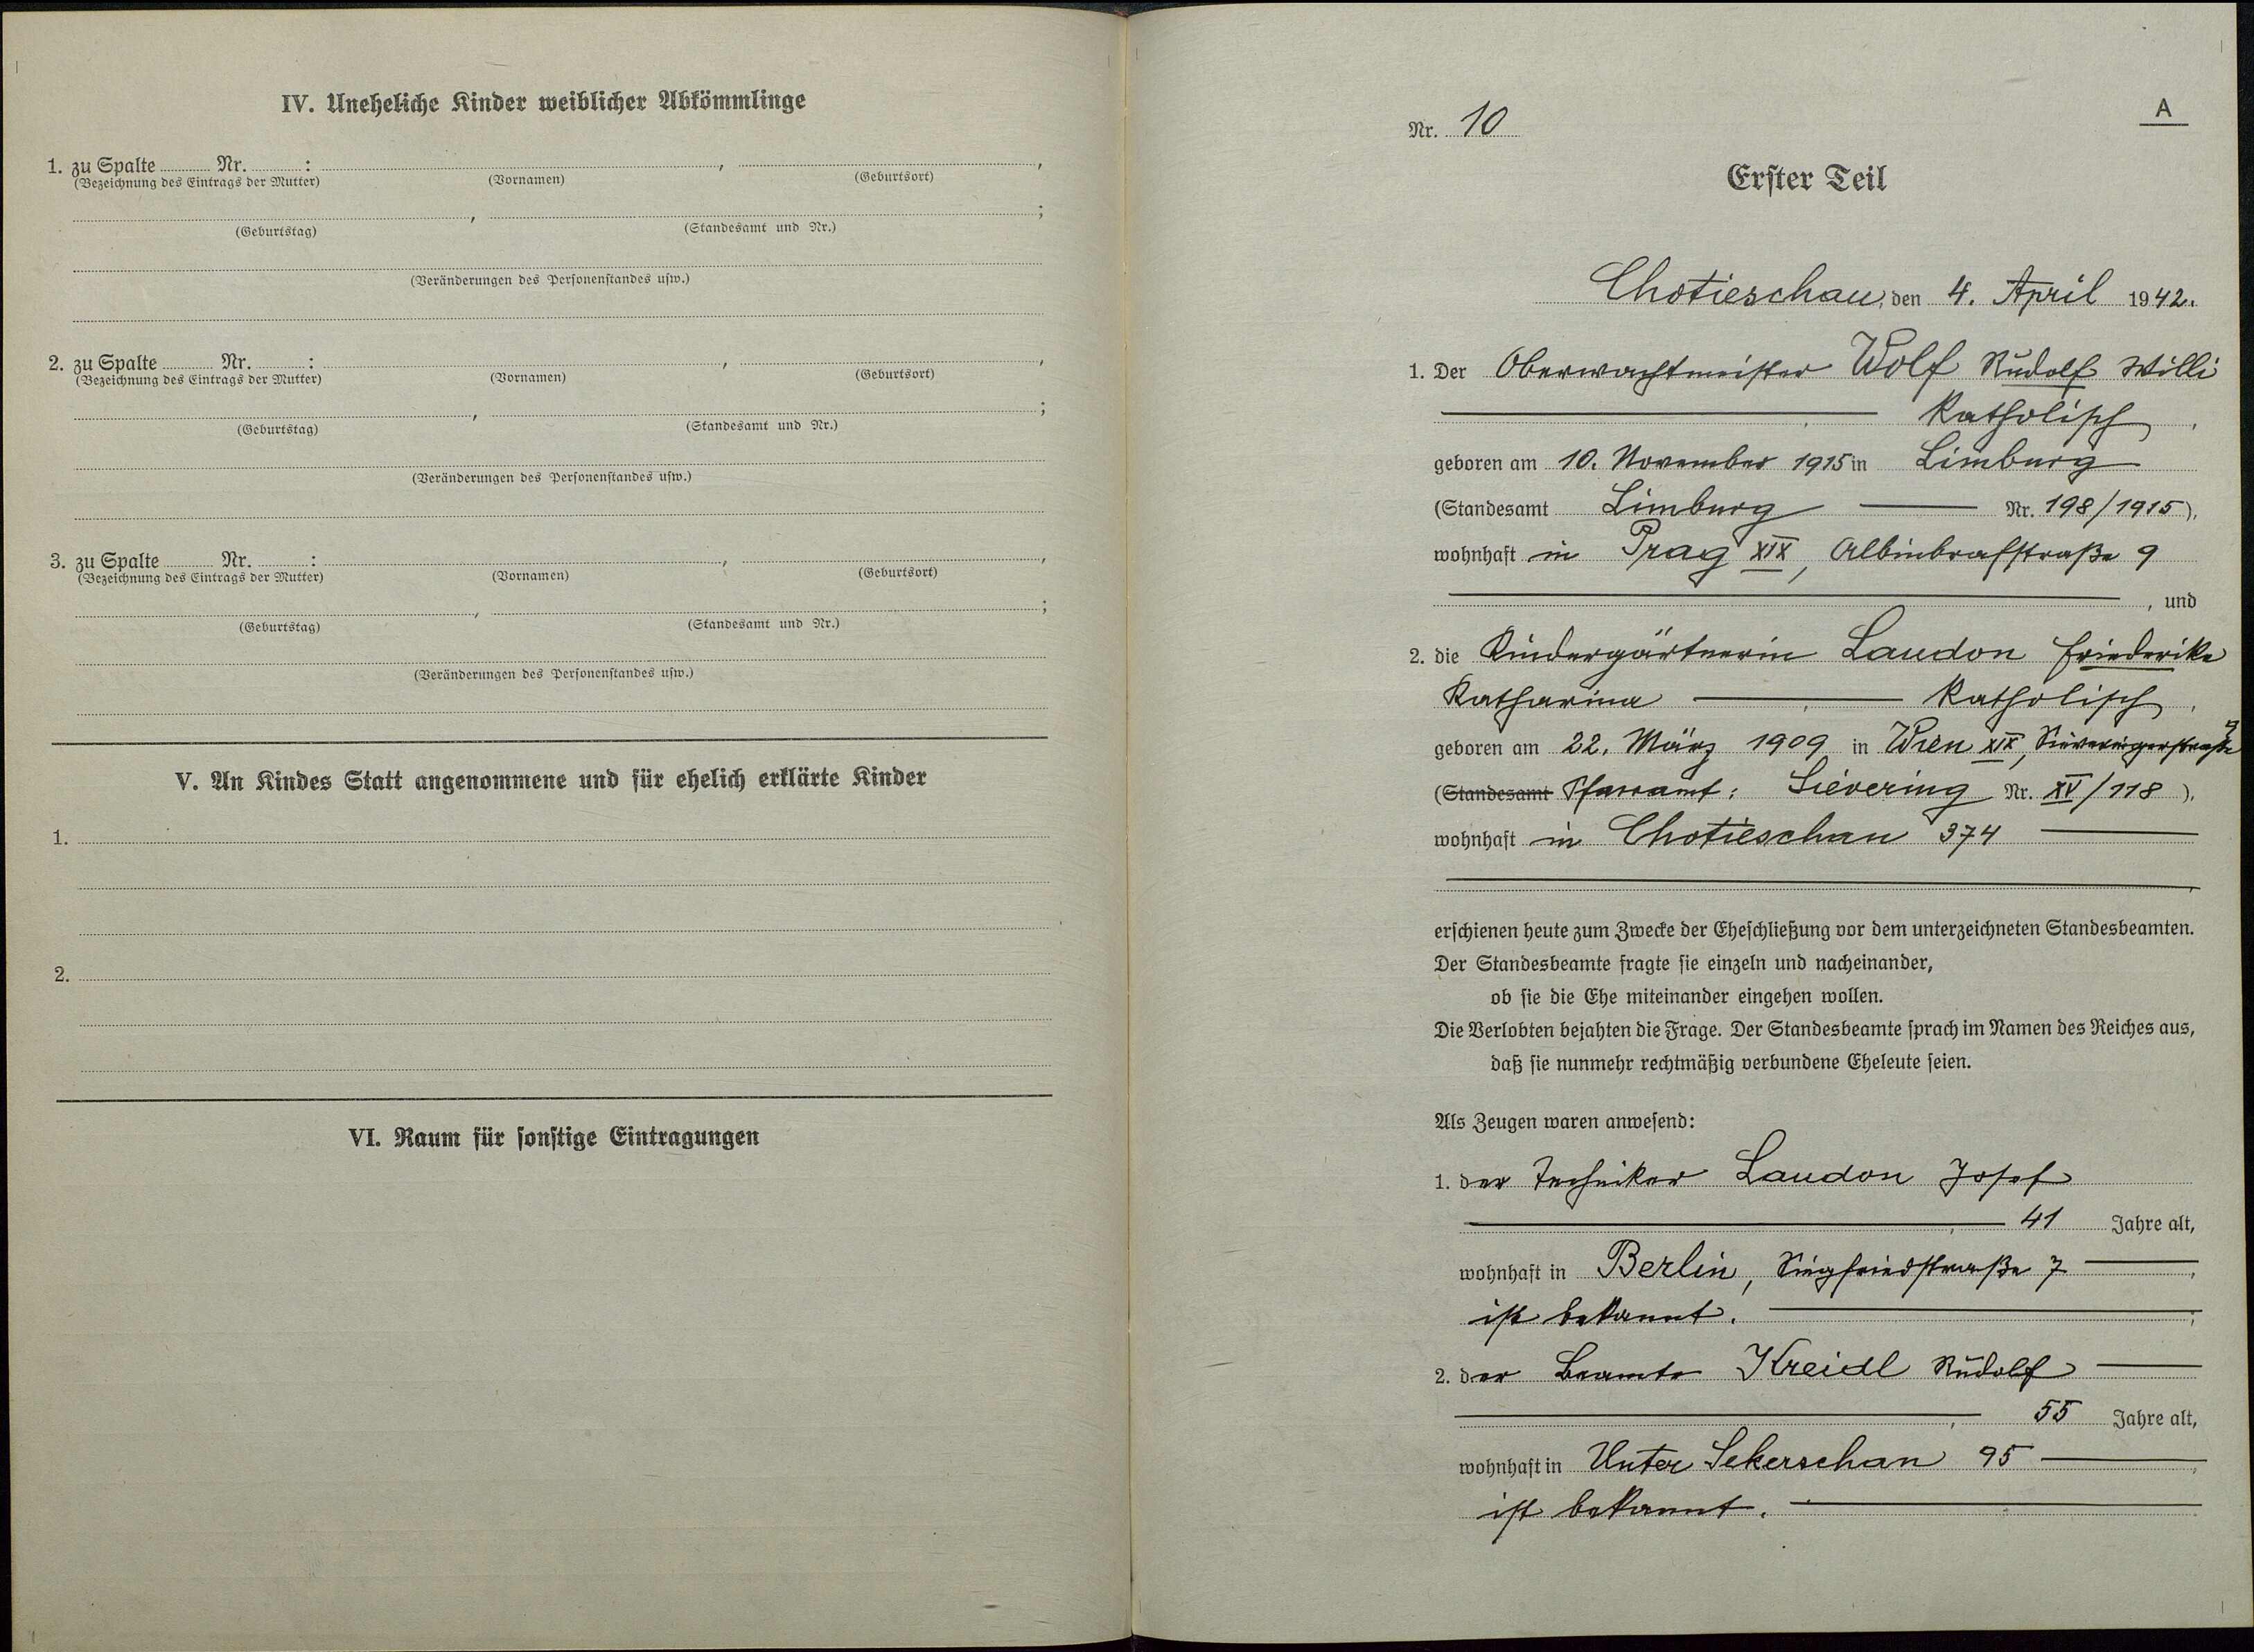 IV. Uneheliche Kinder weiblicher Abkömmlinge
1. zu Spalte Nr. : , ,
(Bezeichnung des Eintrags der Mutter) (Vornamen) (Geburtsort)
, ;
(Geburtstag) (Standesamt und Nr.)
(Veränderungen des Personenstandes usw.)
2. zu Spalte Nr. : , ,
(Bezeichnung des Eintrags der Mutter) (Vornamen) (Geburtsort)
, ;
(Geburtstag) (Standesamt und Nr.)
(Veränderungen des Personenstandes usw.)
3. zu Spalte Nr. : , ,
(Bezeichnung des Eintrags der Mutter) (Vornamen) (Geburtsort)
, ;
(Geburtstag) (Standesamt und Nr.)
(Veränderungen des Personenstandes usw.)
V. An Kindes Statt angenommene und für ehelich erklärte Kinder
1.
2.
VI. Raum für sonstige Eintragungen
A
Nr. 10
Erster Teil
Chotieschau, den 4. April 1942.
1. Der Oberwachtmeister Wolf Rudolf Willi
katholisch,
geboren am 10. November 1915 in Limburg
(Standesamt Limburg Nr. 198/1915),
wohnhaft in Prag XIX, Albinbrafstraße 9
, und
2. die Kindergärtnerin Laudon Friederike
Katharina katholisch,
geboren am 22. März 1909 in Wien XIX, Sieveringerstraße
(Standesamt Pfarramt: Sievering Nr. XV/118),
wohnhaft in Chotieschau 374
erschienen heute zum Zwecke der Eheschließung vor dem unterzeichneten Standesbeamten.
Der Standesbeamte fragte sie einzeln und nacheinander,
ob sie die Ehe miteinander eingehen wollen.
Die Verlobten bejahten die Frage. Der Standesbeamte sprach im Namen des Reiches aus,
daß sie nunmehr rechtmäßig verbundene Eheleute seien.
Als Zeugen waren anwesend:
1. der Techniker Laudon Josef
, 41 Jahre alt,
wohnhaft in Berlin, Siegfriedstraße 7,
ist bekannt. ;
2. der Beamte Kreidl Rudolf
, 55 Jahre alt,
wohnhaft in Unter Sekerschan 95,
ist bekannt.